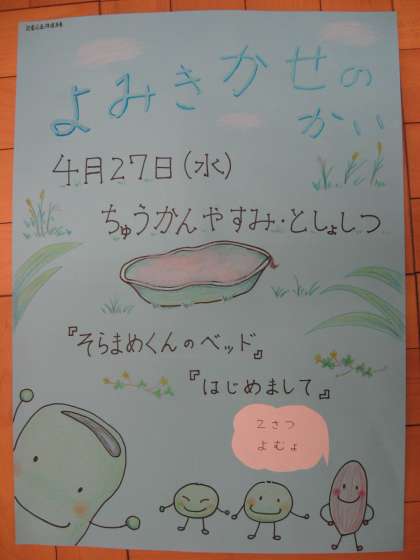 よみきかせの
かい
4月27日(水)
ちゅうかんやすみ・としょしつ
『そらまめくんのベッド』
『はじめまして』
2さつ
よむよ